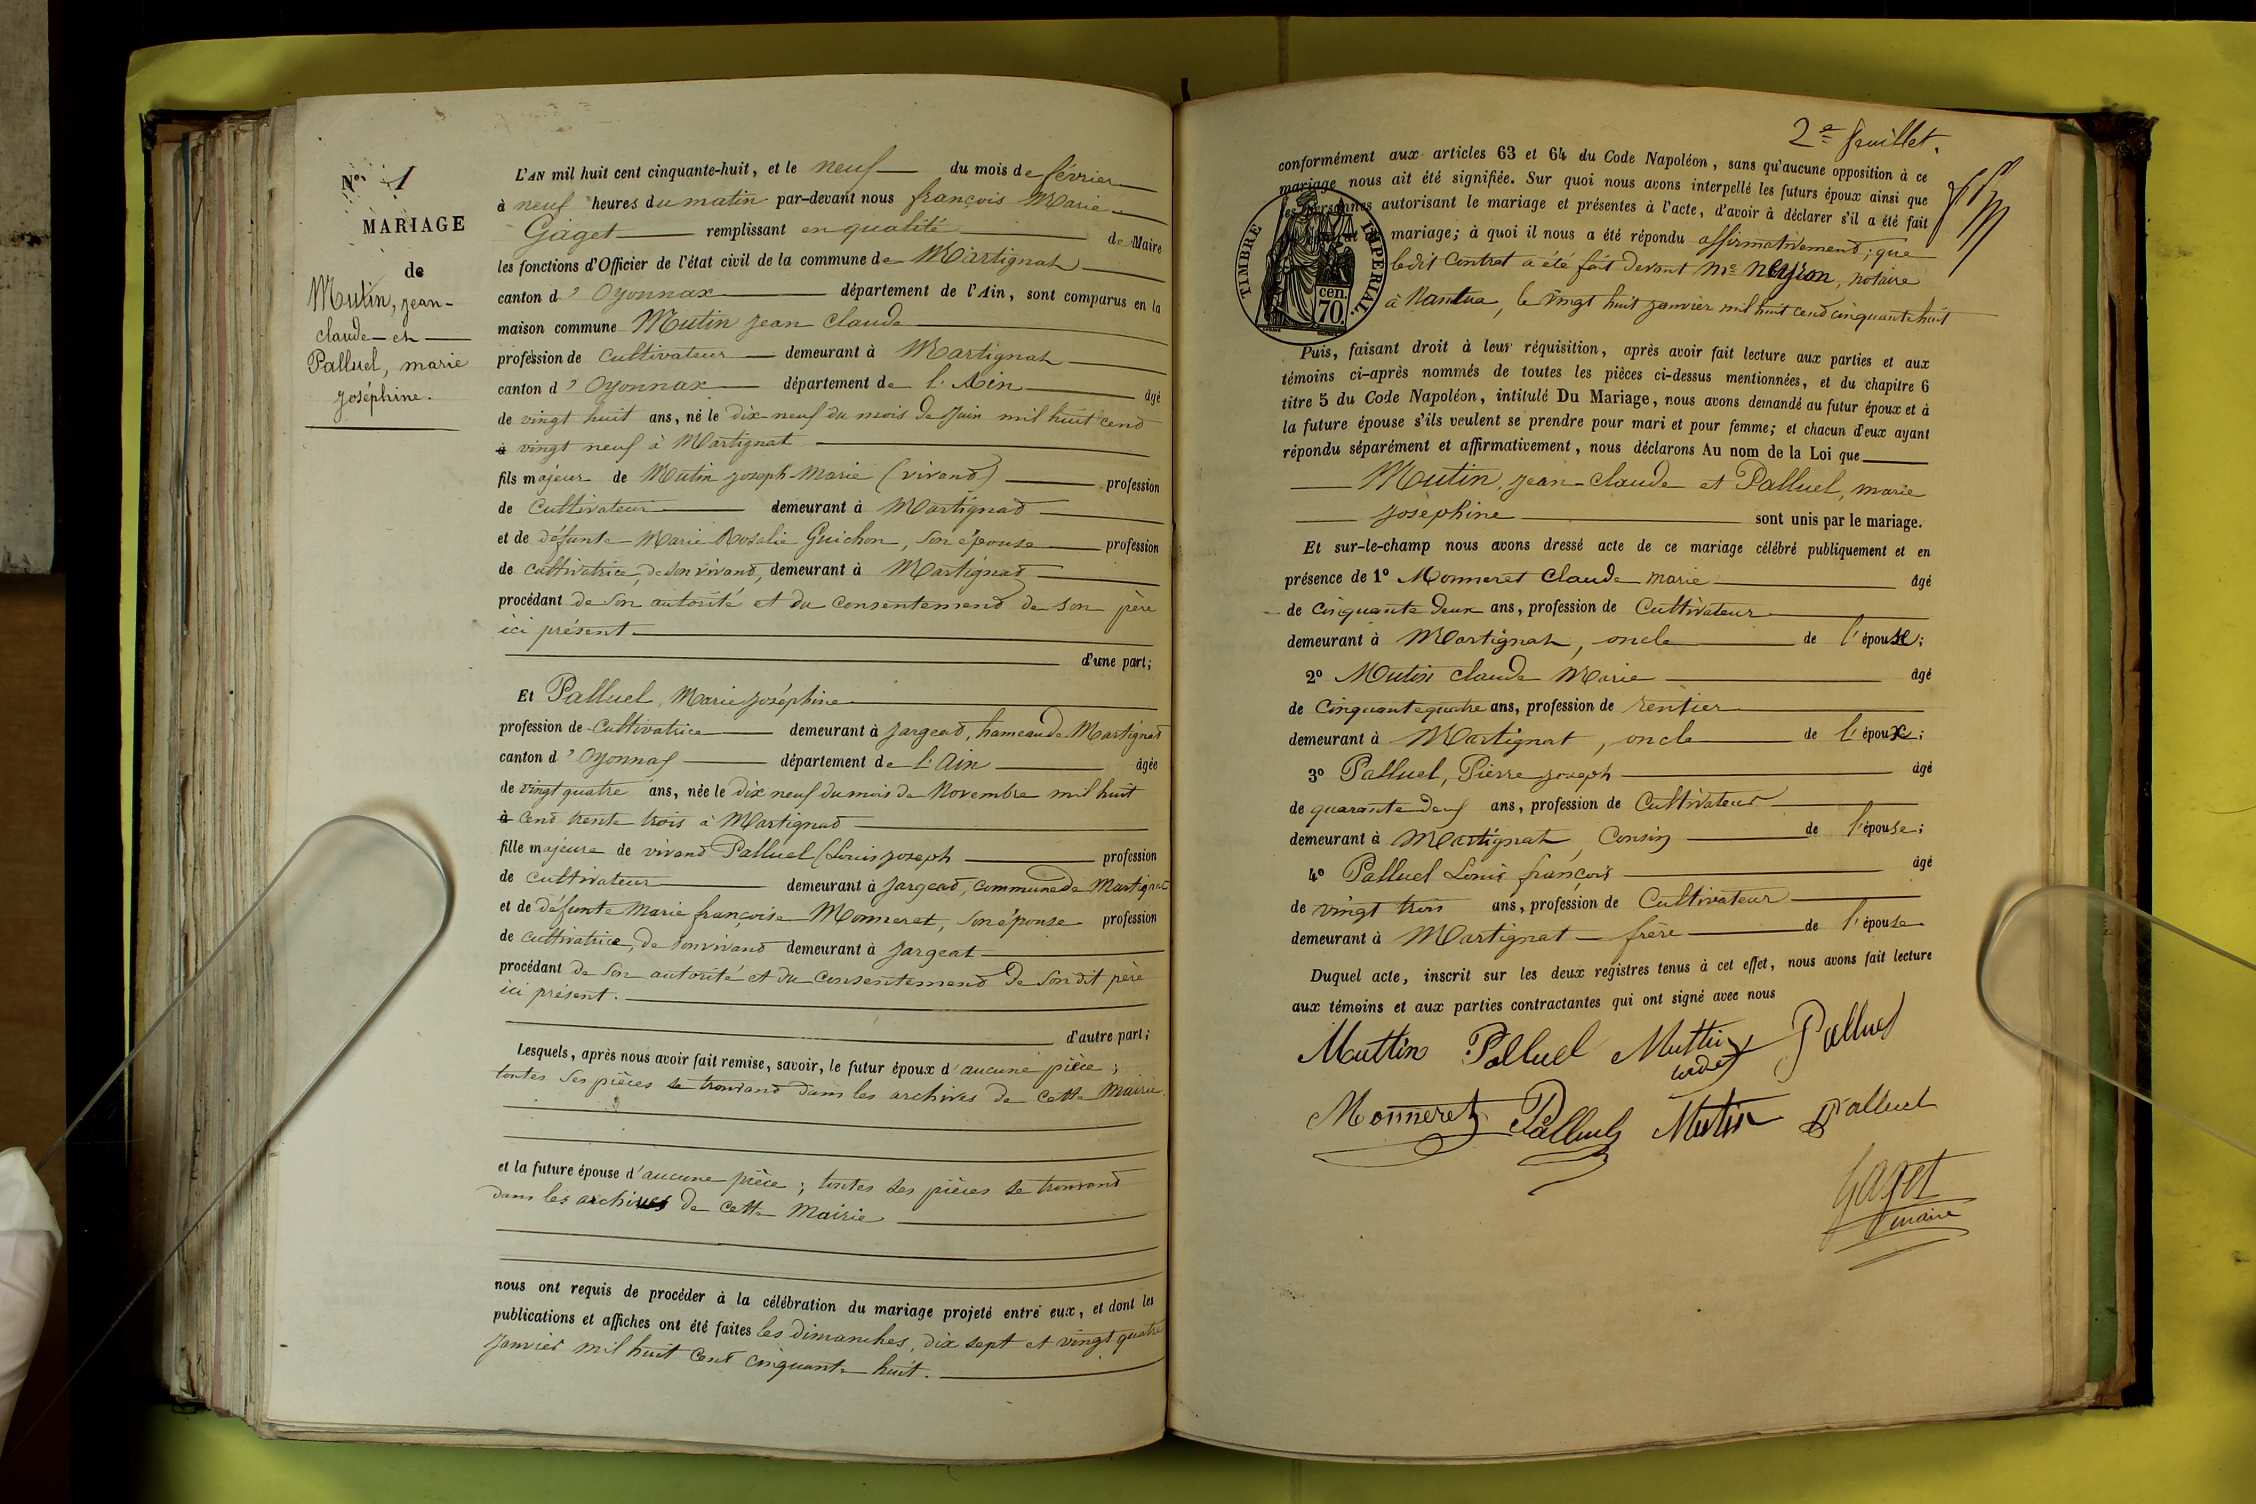 N° 1
MARIAGE
de
Mutin, jean-
claude - et
Palluel, marie
joséphine.
L'AN mil huit cent cinquante-huit, et le neuf du mois de février
à neuf heures du matin par-devant nous françois Marie
Gaget remplissant en qualité de Maire
les fonctions d'Officier de l'état civil de la commune de Martignat
canton d'Oyonnax département de l'Ain, sont comparus en la
maison commune Mutin jean claude
profession de cultivateur demeurant à Martignat
canton d'Oyonnax département de l'Ain âgé
de vingt huit ans, né le dix-neuf du mois de juin mil huit cend
à vingt neuf à Martignat
fils majeur de Mutin joseph-Marie (vivand) profession
de Cultivateur demeurant à Martignad
et de défunte Marie Rosalie Guichon, son épouse profession
de cultivatrice, de son vivand, demeurant à Martignad
procédant de son autorité et du consentemend de son père
ici présent.
d'une part;
Et Palluel, Marie joséphine
profession de Cultivatrice demeurant à jargead, hameau de Martignad
canton d'Oyonnax département de l'Ain âgée
de vingt quatre ans, née le dix neuf du mois de Novembre mil huit
à cend trente trois à Martignad
fille majeure de vivand Palluel (Louis joseph profession
de cultivateur demeurant à jargead, commune de Martignat
et de défunte Marie françoise Monneret, son épouse profession
de cultivatrice, de son vivand demeurant à jargeat
procédant de son autorité et du consentemend de son dit père
ici présent.
d'autre part;
Lesquels, après nous avoir fait remise, savoir, le futur époux d'aucune pièce;
toutes ses pièces se trouvand dans les archives de cette Mairie.
et la future épouse d'aucune pièce; toutes ses pièces se trouvand
dans les archives de cette Mairie
nous ont requis de procéder à la célébration du mariage projeté entre eux, et dont les
publications et affiches ont été faites les dimanches, dix sept et vingt quatre
janvier mil huit cent cinquante huit.
2e feuillet.
conformément aux articles 63 et 64 du Code Napoléon, sans qu'aucune opposition à ce
mariage nous ait été signifiée. Sur quoi nous avons interpellé les futurs époux ainsi que
les personnes autorisant le mariage et présentes à l'acte, d'avoir à déclarer s'il a été fait
mariage; à quoi il nous a été répondu affirmativemend; que
ledit Contrat a été fait devant Me Neyron, notaire
à Nantua, le vingt huit janvier mil huit cend cinquante huit
TIMBRE IMPERIAL.
70. cen.
Puis, faisant droit à leur réquisition, après avoir fait lecture aux parties et aux
témoins ci-après nommés de toutes les pièces ci-dessus mentionnées, et du chapitre 6
titre 5 du Code Napoléon, intitulé Du Mariage, nous avons demandé au futur époux et à
la future épouse s'ils veulent se prendre pour mari et pour femme; et chacun d'eux ayant
répondu séparément et affirmativement, nous déclarons Au nom de la Loi que
Mutin, jean-claude et Palluel, marie
joséphine sont unis par le mariage.
Et sur-le-champ nous avons dressé acte de ce mariage célébré publiquement et en
présence de 1° Monneret Claude marie âgé
de cinquante deux ans, profession de Cultivateur
demeurant à Martignat, oncle de l'épouse;
2° Mutin claude Marie âgé
de Cinquante quatre ans, profession de rentier
demeurant à Martignat, oncle de l'époux;
3° Palluel, Pierre joseph âgé
de quarante deux ans, profession de Cultivateur
demeurant à Martignat, Cousin de l'épouse;
4° Palluel Louis françois âgé
de vingt trois ans, profession de Cultivateur
demeurant à Martignat - frère de l'épouse
Duquel acte, inscrit sur les deux registres tenus à cet effet, nous avons fait lecture
aux témoins et aux parties contractantes qui ont signé avec nous
Muttin Palluel Muttin Palluel
Monneret Palluel Mutin Palluel
Gaget
maire